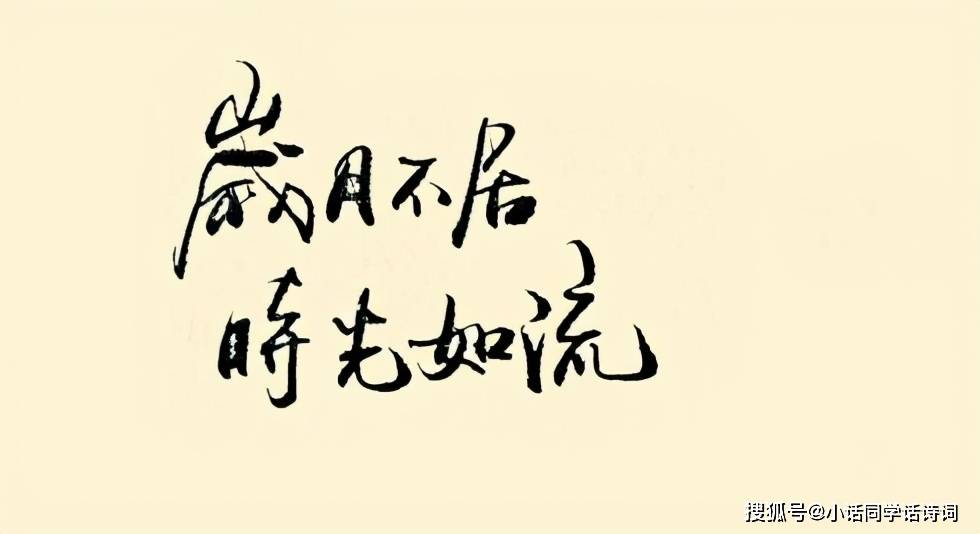 歲月不居
時光如流
搜狐号@小话同学话诗词